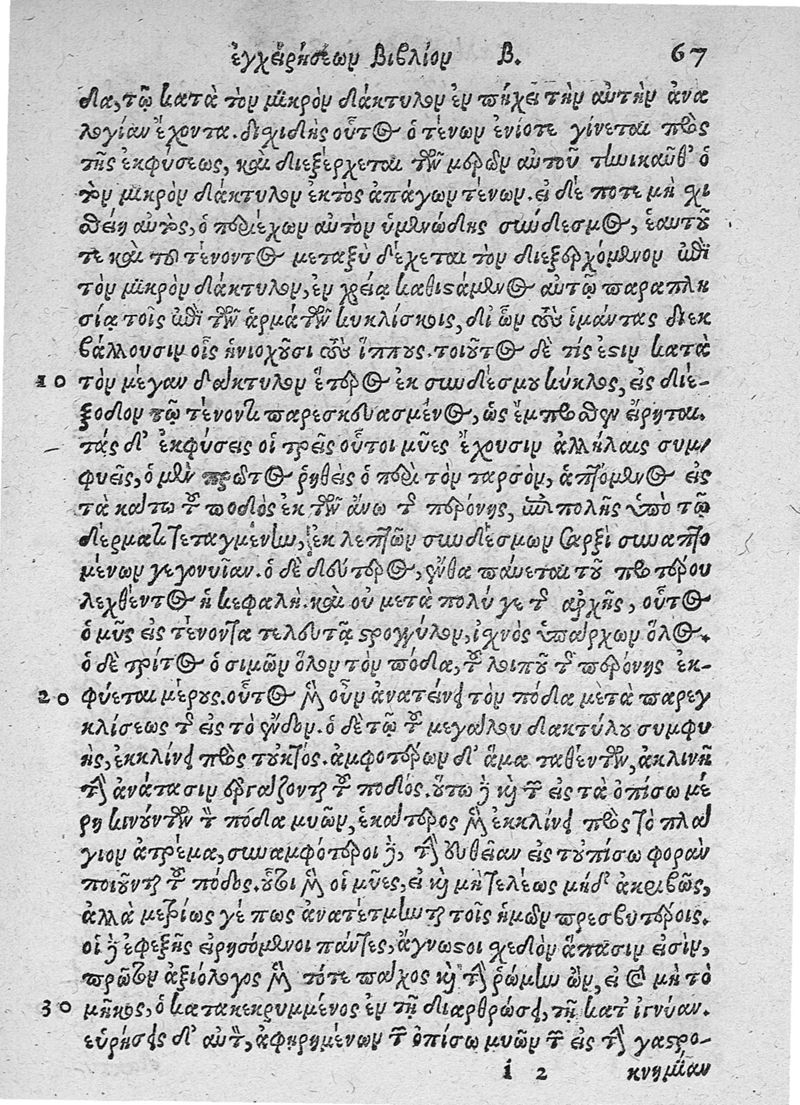 ἐγχειρήσεων Βιβλίον Β. 67
δια, τῷ κατὰ τὸν μικρὸν δάκτυλον ἐν πήχει τὴν αὐτὴν ἀνα
λογίαν ἔχοντα. διχιδὴς οὗτος ὁ τένων ἐνίοτε γίνεται πρὸς
τῆς ἐκφύσεως, καὶ διεξέρχεται τῶν μερῶν αὐτοῦ τηνικαῦθ' ὁ
τὸν μικρὸν δάκτυλον ἐκτὸς ἀπάγων τένων. εἰ δέ ποτε μὴ χι
θείη αὐτὸς, ὁ περιέχων αὐτὸν ὑμενώδης σύνδεσμος, ἑαυτοῦ
τε καὶ τοῦ τένοντος μεταξὺ δέχεται τὸν διεξερχόμενον ἐπὶ
τὸν μικρὸν δάκτυλον, ἐν χρείᾳ καθιστάμενος αὐτῷ παραπλη
σίᾳ τοῖς ἐπὶ τῶν ἁρμάτων κυκλίσκοις, δι' ὧν τοὺς ἱμάντας διεκ
βάλλουσιν οἷς ἡνιοχοῦσι τοὺς ἵππους. τοιοῦτος δὲ τίς ἐστιν κατὰ
10 τὸν μέγαν δάκτυλον ἕτερος ἐκ συνδέσμου κύκλος, εἰς διέ-
ξοδον τῷ τένοντι παρεσκευασμένος, ὡς ἔμπροσθεν εἴρηται.
τάς δ' ἐκφύσεις οἱ τρεῖς οὗτοι μῦες ἔχουσιν ἀλλήλαις συμ-
φυεῖς, ὁ μὲν πρῶτος ῥηθεὶς ὁ περὶ τὸν ταρσὸν, ἁπτόμενος εἰς
τὰ κάτω τοῦ ποδὸς ἐκ τῶν ἄνω τῆς περόνης, ἐπιπολῆς ὑπὸ τῷ
δέρματι τεταγμένην, ἐκ λεπτῶν συνδέσμων σαρξὶ συναπτο
μένων γεγονυῖαν. ὁ δὲ δεύτερος, ἔνθα παύεται τοῦ προτέρου
λεχθέντος ἡ κεφαλή. καὶ οὐ μετὰ πολύ γε τῆς ἀρχῆς, οὗτος
ὁ μῦς εἰς τένοντα τελευτᾷ στρογγύλον, ἰχνὸς ὑπάρχων ὅλος.
ὁ δὲ τρίτος ὁ σιμῶν ὅλον τὸν πόδα, τοῦ λοιποῦ τῆς περόνης ἐκ-
20 φύεται μέρους. οὗτος μὲν οὖν ἀνατείνει τὸν πόδα μετὰ παρεγ
κλίσεως τῆς εἰς τὸ ἔνδον. ὁ δὲ τῷ τοῦ μεγάλου δακτύλου συμφυ
ὴς, ἐκκλίνει πρὸς τοὐκτός. ἀμφοτέρων δ' ἅμα ταθέντων, ἀκλινῆ
τὴν ἀνάτασιν ἐργάζονται τοῦ ποδός. οὕτω δὲ καὶ τῶν εἰς τὰ ὀπίσω μέ
ρη κινούντων τὸν πόδα μυῶν, ἑκάτερος μὲν ἐκκλίνει πρὸς τὸ πλά
γιον ἀτρέμα, συναμφότεροι δὲ, τὴν εὐθεῖαν εἰς τοὐπίσω φορὰν
ποιοῦνται τοῦ πόδος. οὗτοι μὲν οἱ μῦες, εἰ καὶ μὴ τελέως μηδ' ἀκριβῶς,
ἀλλὰ μετρίως γέ πως ἀνατέτμηνται τοῖς ἡμῶν πρεσβυτέροις.
οἱ δὲ ἐφεξῆς εἰρησόμενοι πάντες, ἄγνωστοι σχεδὸν ἅπασιν εἰσὶν,
πρῶτον ἀξιόλογος μὲν τότε πάχος καὶ τὴν ῥώμην ὢν, εἰ καὶ μὴ τὸ
30 μῆκος, ὁ κατακεκρυμμένος ἐν τῇ διαρθρώσει, τῇ κατ' ἰγνύαν.
εὑρήσεις δ' αὐτὸν, ἀφῃρημένων τῶν ὀπίσω μυῶν τῶν εἰς τὴν γαστρο-
i 2 κνημίαν